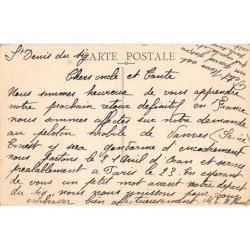 St Denis du Sig
CARTE POSTALE
Chers oncle et Tante
Nous sommes heureux de vous apprendre
notre prochain retour définitif en France
nous sommes affectés sur notre demande
au peloton mobile de Vanves (Seine
Ernest y sera gendarme d'encadrement
nous partons le 21 Avril d'Oran et serons
préalablement à Paris le 23. En espérant
de vous un petit mot avant notre départ
du Sig nous nous unissons pour vous
embrasser bien affectueusement.